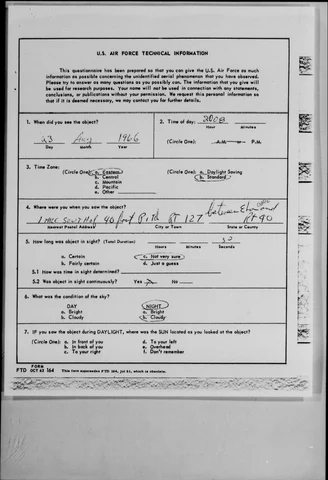 U.S. AIR FORCE TECHNICAL INFORMATION
This questionnaire has been prepared so that you can give the U.S. Air Force as much
information as possible concerning the unidentified aerial phenomenon that you have observed.
Please try to answer as many questions as you possibly can. The information that you give will
be used for research purposes. Your name will not be used in connection with any statements,
conclusions, or publications without your permission. We request this personal information so
that if it is deemed necessary, we may contact you for further details.
1. When did you see the object?
23 Aug 1966
Day Month Year
2. Time of day: 2008
Hour Minutes
(Circle One): A.M. or P.M.
3. Time Zone:
(Circle One): a. Eastern
b. Central
c. Mountain
d. Pacific
e. Other
(Circle One): a. Daylight Saving
b. Standard
4. Where were you when you saw the object?
1 mile South of RT 127 between RT 90
Nearest Postal Address City or Town State or County
5. How long was object in sight? (Total Duration)
Hours Minutes Seconds
a. Certain c. Not very sure
b. Fairly certain d. Just a guess
5.1 How was time in sight determined?
5.2 Was object in sight continuously? Yes No
6. What was the condition of the sky?
DAY NIGHT
a. Bright a. Bright
b. Cloudy b. Cloudy
7. IF you saw the object during DAYLIGHT, where was the SUN located as you looked at the object?
(Circle One): a. In front of you d. To your left
b. In back of you e. Overhead
c. To your right f. Don't remember
FORM
FTD OCT 62 164 This form supersedes FTD 164, Jul 61, which is obsolete.